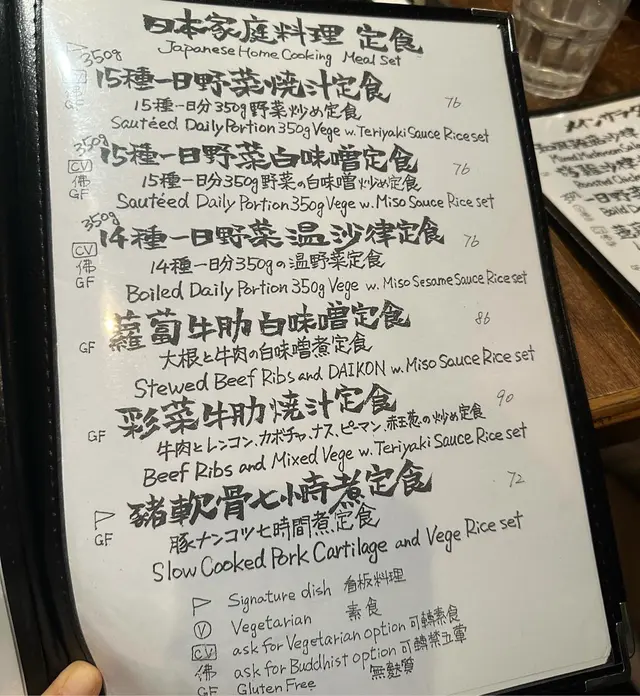 日本家庭料理 定食
Japanese Home Cooking Meal Set
350g
15種一日野菜焼汁定食 76
GF
15種一日分350g野菜炒め定食
Sautéed Daily Portion 350g Vege w. Teriyaki Sauce Rice set
350g
CV 15種一日野菜白味噌定食 76
佛
GF
15種一日分350g野菜の白味噌炒め定食
Sautéed Daily Portion 350g Vege w. Miso Sauce Rice set
350g
CV 14種一日野菜温沙律定食 76
佛
GF
14種一日分350gの温野菜定食
Boiled Daily Portion 350g Vege w. Miso Sesame Sauce Rice set
GF 蘿蔔牛肋白味噌定食 86
大根と牛肉の白味噌煮定食
Stewed Beef Ribs and DAIKON w. Miso Sauce Rice set
GF 彩菜牛肋焼汁定食 90
牛肉とレンコン、カボチャ、ナス、ピーマン、赤玉葱の炒め定食
Beef Ribs and Mixed Vege w. Teriyaki Sauce Rice set
GF 豬軟骨七小時煮定食 72
豚ナンコツ七時間煮定食
Slow Cooked Pork Cartilage and Vege Rice set
Signature dish 看板料理
V Vegetarian 素食
CV ask for Vegetarian option 可轉素食
佛 ask for Buddhist option 可轉禁五葷
GF Gluten Free 無麩質